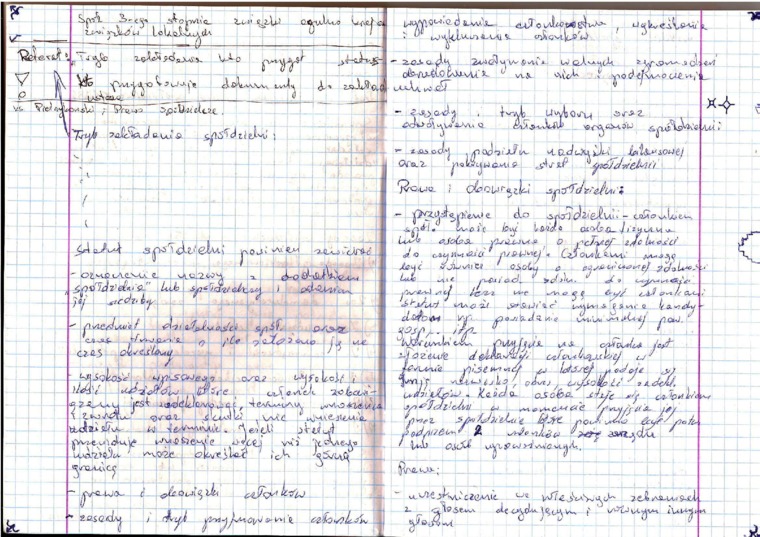 Spół. 3-ego stopnia związki ogólno kraj.
związków lokalnych
Referat: Tryb zakładania lub przygot statut
przygotowuje dokumenty do zakład
ustawa
Prawo spółdzielcze.
Tryb zakładania spółdzielni:
Statut spółdzielni powinien zawierać
- oznaczenie nazwy z dodatkiem
"spółdzielnia" lub spółdzielczy i
jej siedziby
- przedmiot działalności spół. oraz
czas trwania o ile założono ją na
czas określony
- wysokość wpisowego oraz wysokość i
ilość udziałów które członek zobow-
ązany jest zadeklarować, terminy wnoszenia
i zwrotu oraz skutki nie wniesienia
udziału w terminie. Jeżeli statut
przewiduje wnoszenie więcej niż jednego
udziału może określać ich górną
granicę
- prawa i obowiązki członków
- zasady i tryb przyjmowania członków
wypowiadania członkostwa, wykreślania
i wykluczania członków
- zasady zwoływania walnych zgromadzeń
obradowania na nich i podejmowania
uchwał
- zasady i tryb wyboru oraz
odwoływania członków organów spółdzielni
- zasady podziału nadwyżki bilansowej
oraz pokrywania strat spółdzielni
Prawa i obowiązki spółdzielni:
- przystąpienie do spółdzielni - członkiem
spół. może być każda osoba fizyczna
lub osoba prawna o pełnej zdolności
do czynności prawnej. Członkami mogą
być również osoby o ograniczonej zdolności
lub nie posiad. zdoln. do czynności
prawnej lecz nie mogą być członkami
Statut może stawiać wymagania kandy-
datom np. posiadanie minimalnej pow.
gosp. itp
Warunkiem przyjęcia na członka jest
złożenie deklaracji członkowskiej w
formie pisemnej w której podaje się
imię nazwisko, adres, wysokość zadekl.
udziałów. Każda osoba staje się członkiem
spółdzielni w momencie przyjęcia jej
przez spółdzielnię powinno być potw
podpisem 2 członków zarządu
lub osób upoważnionych.
Prawa:
- uczestniczenie we właściwych zebraniach
z głosem decydującym i równym innym
głosom